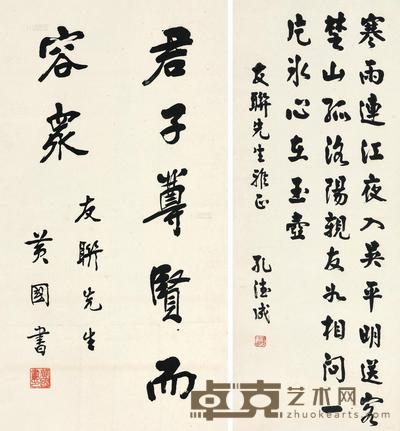 寒雨連江夜入吴平明送客
楚山孤洛陽親友如相問一
片冰心在玉壺
友聯先生雅正
孔德成
君子尊賢而
容衆
友聯先生
黄國書
卓克艺术网
zhuokearts.com